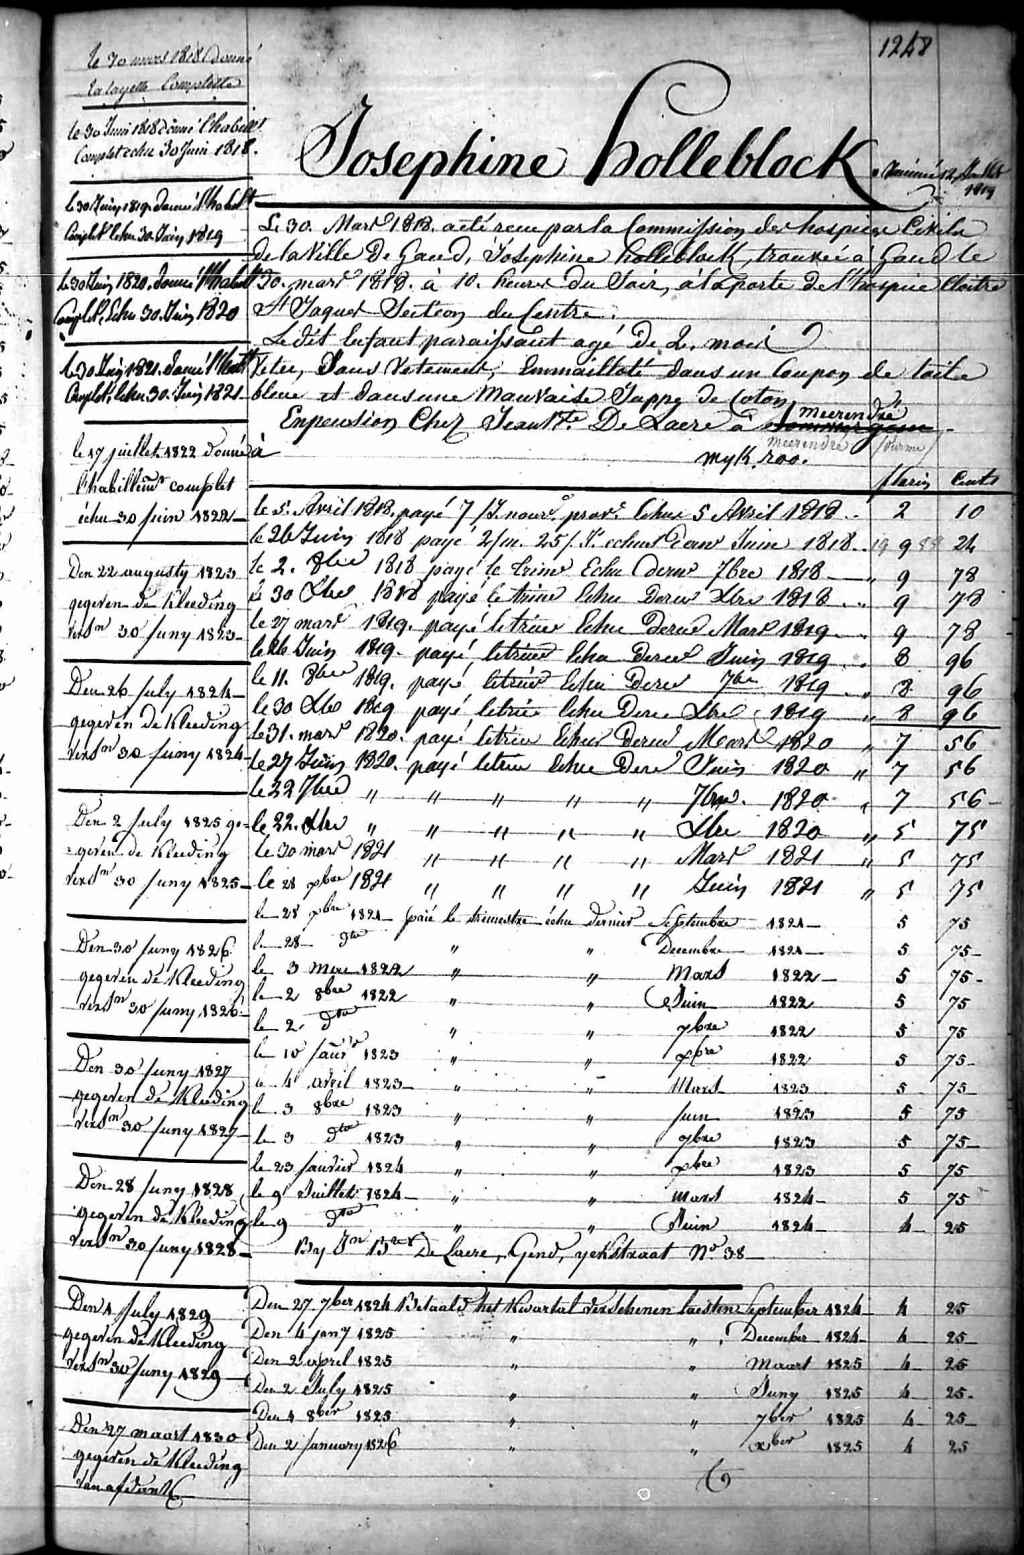 1248
le 30 mars 1818 donné
la layette Complette
le 30 Juin 1818 donné l'habillt
Complet echu 30 Juin 1818.
le 30 Juin 1819 donné l'habillt
Complet Echu 30 Juin 1819
le 30 Juin 1820 donné l'habillt
Complet Echu 30 Juin 1820
le 30 Juin 1821 donné l'habillt
Complet Echu 30 Juin 1821
le 17 juillet 1822 donné
l'habillemt complet
échu 30 Juin 1822
Den 22 augusty 1823
gegeven de Kleeding
versn 30 Juny 1823
Den 26 July 1824
gegeven de Kleeding
versn 30 Juny 1824
Den 2 July 1825 ge-
geven de Kleeding
versn 30 Juny 1825
Den 30 Juny 1826
gegeven de Kleeding
versn 30 Juny 1826
Den 30 Juny 1827
gegeven de Kleeding
versn 30 Juny 1827
Den 28 Juny 1828
gegeven de Kleeding
versn 30 Juny 1828
Den 1 July 1829
gegeven de Kleeding
versn 30 Juny 1829
Den 27 maart 1830
gegeven de Kleeding
Josephine holleblock
1819
Le 30. Mars 1818. acté reçu par la Commission des hospices Civils
de la Ville De Gand, Josephine holleblock, trouvée à Gand le
30. mars 1818. à 10. heures du Soir, à la porte de l'hospice Cloitre
St Jaques Section du Centre.
Le dit Enfant paraissant agé de 2. mois
Vetu, Sans Vetement, Emmailloté dans un Coupon de toile
bleue et dans une Mauvaise Juppe de Coton
Enpension Chez Jean Bte De Laere à meerendré
à meerendré
florin Cents
le 5 Avril 1818. payé 7/J. nour. prov. Echu 5 Avril 1818 2 10
le 26 Juin 1818 payé 2/m. 25/J. echus Juin 1818 9 24
le 2. 8bre 1818 payé le trime Echu derer 7bre 1818 9 78
le 30 Xbre 1818 payé le trime Echu Derer Xbre 1818 9 78
le 27 mars 1819. payé letrim Echu derer Mars 1819 9 78
le 26 Juin 1819. payé letrim Echu Derer Juin 1819 8 96
le 11. 8bre 1819. payé letrim Echu Derer 7bre 1819 " 8 96
le 30 Xbre 1819 payé letrim Echu Derer Xbre 1819 " 8 96
le 31. mars 1820. payé letrim Echu Derer Mars 1820 " 7 56
le 27 Juin 1820. payé letrim Echu Derer Juin 1820 " 7 56
le 22 7bre " " " " " 7bre. 1820 " 7 56
le 22. Xbre " " " " " Xbre 1820 " 5 75
le 30 mars 1821 " " " " Mars 1821 " 5 75
le 28 xbre 1821 " " " " Juin 1821 " 5 75
le 28 xbre 1821 paié le trimestre échu dernier Septembre 1821 5 75
le 28 dto " " Decembre 1821 5 75
le 3 1822 " " Mars 1822 5 75
le 2 8bre 1822 " " Juin 1822 5 75
le 2 dto " " 7bre 1822 5 75
le 10 Janvr 1823 " " xbre 1822 5 75
le 4 avril 1823 " " Mars 1823 5 75
le 3 8bre 1823 " " Juin 1823 5 75
le 3 dto 1823 " " 7bre 1823 5 75
le 23 Janvier 1824 " " xbre 1823 5 75
le 9 Juillet 1824 " " mars 1824 5 75
le 9 dto " " Juin 1824 4 25
By Jn Bte De Laere, Gend, No 38
Den 27 7ber 1824 Betaald het Kwartal verschenen laesten September 1824 4 25
Den 4 jany 1825 " " December 1824 4 25
Den 2 april 1825 " " Maart 1825 4 25
Den 2 July 1825 " " Juny 1825 4 25
Den 1 8ber 1825 " " 7ber 1825 4 25
Den 2 January 1826 " " xber 1825 4 25